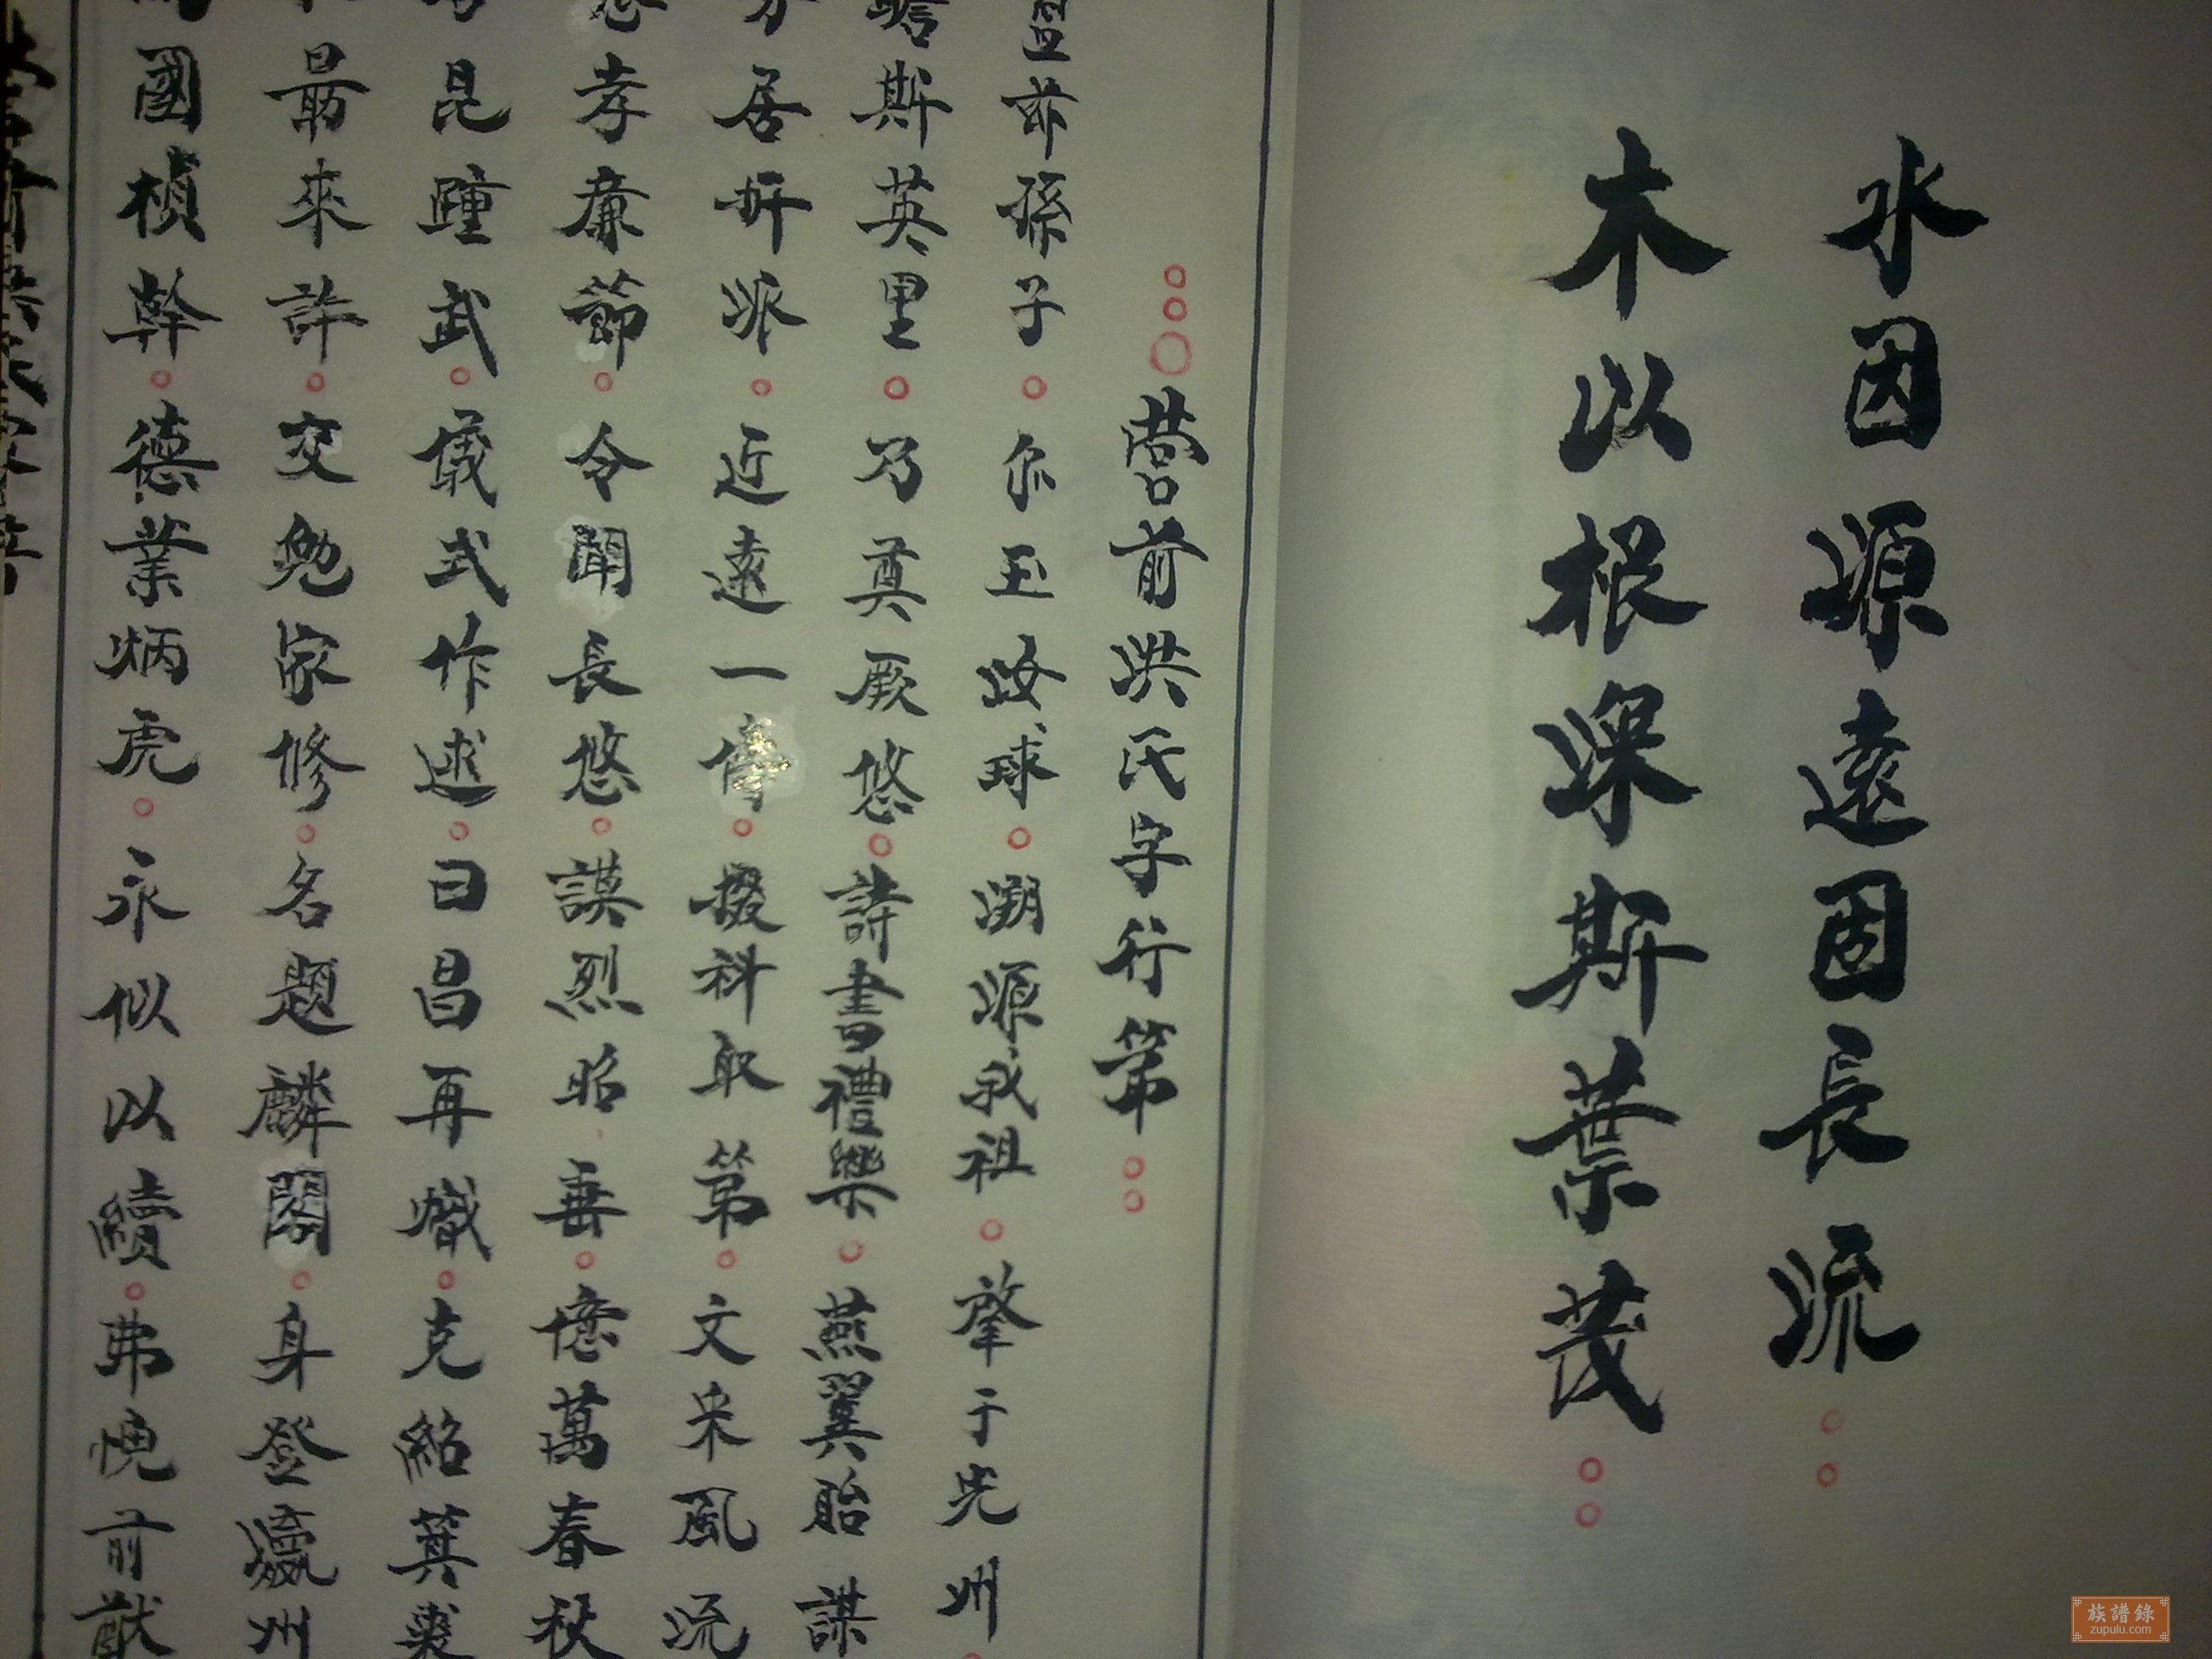 水因源遠固長流
木以根深斯葉茂
营前洪氏字行第
孫子尔玉汝球溯源我祖肇于光州
斯英里乃奠厥悠詩書禮樂燕翼貽謀
居折派近遠一掇科取第文采風流
孝廉節令聞長悠謨烈昭垂億萬春秋
昆踵武儀式作述曰昌再熾克紹箕裘
最來許交勉家修名題麟閣身登瀛州
國楨幹德業炳虎永似以續弗愧前猷
族譜錄
zupulu.com